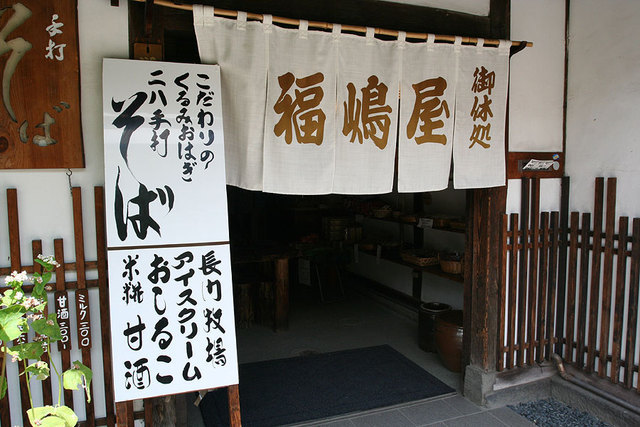 手打
そば
福嶋屋
御休処
こだわりの
くるみおはぎ
二八手打
そば
長門牧場
アイスクリーム
おしるこ
米糀 甘酒
ミルク 二〇〇
甘酒 三〇〇